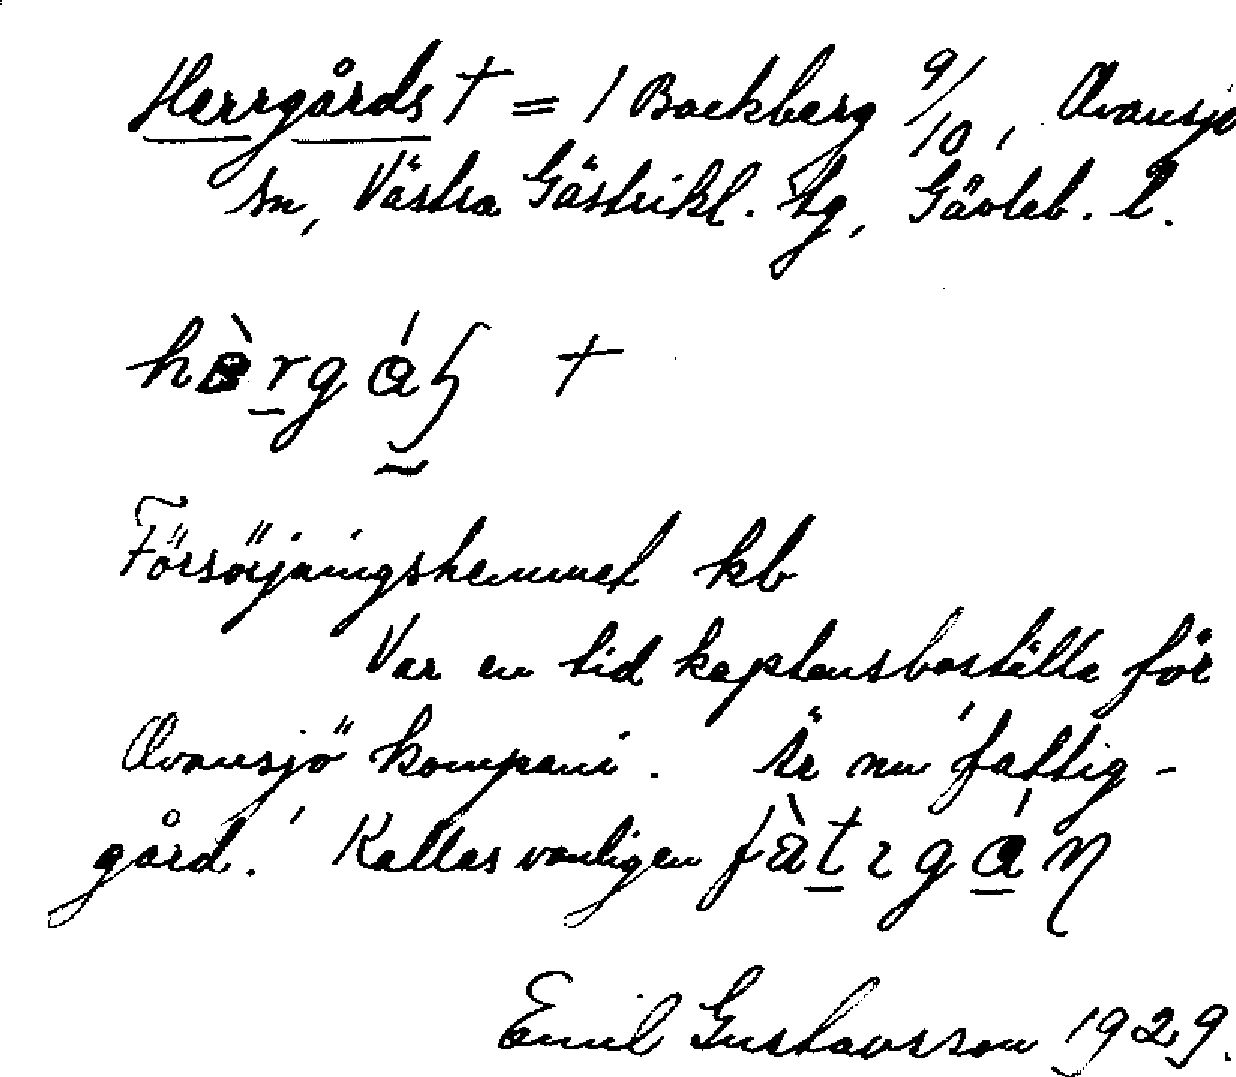 Herrgårds † = 1 Backberg 9/10, Ovansjö
sn, Västra Gästrikl. tg, Gävleb. l.
†
Försörjningshemmet kb
Var en tid kaptensboställe för
Ovansjö kompani. Är nu 'fattig-
gård.' Kallas vanligen
Emil Gustavsson 1929.